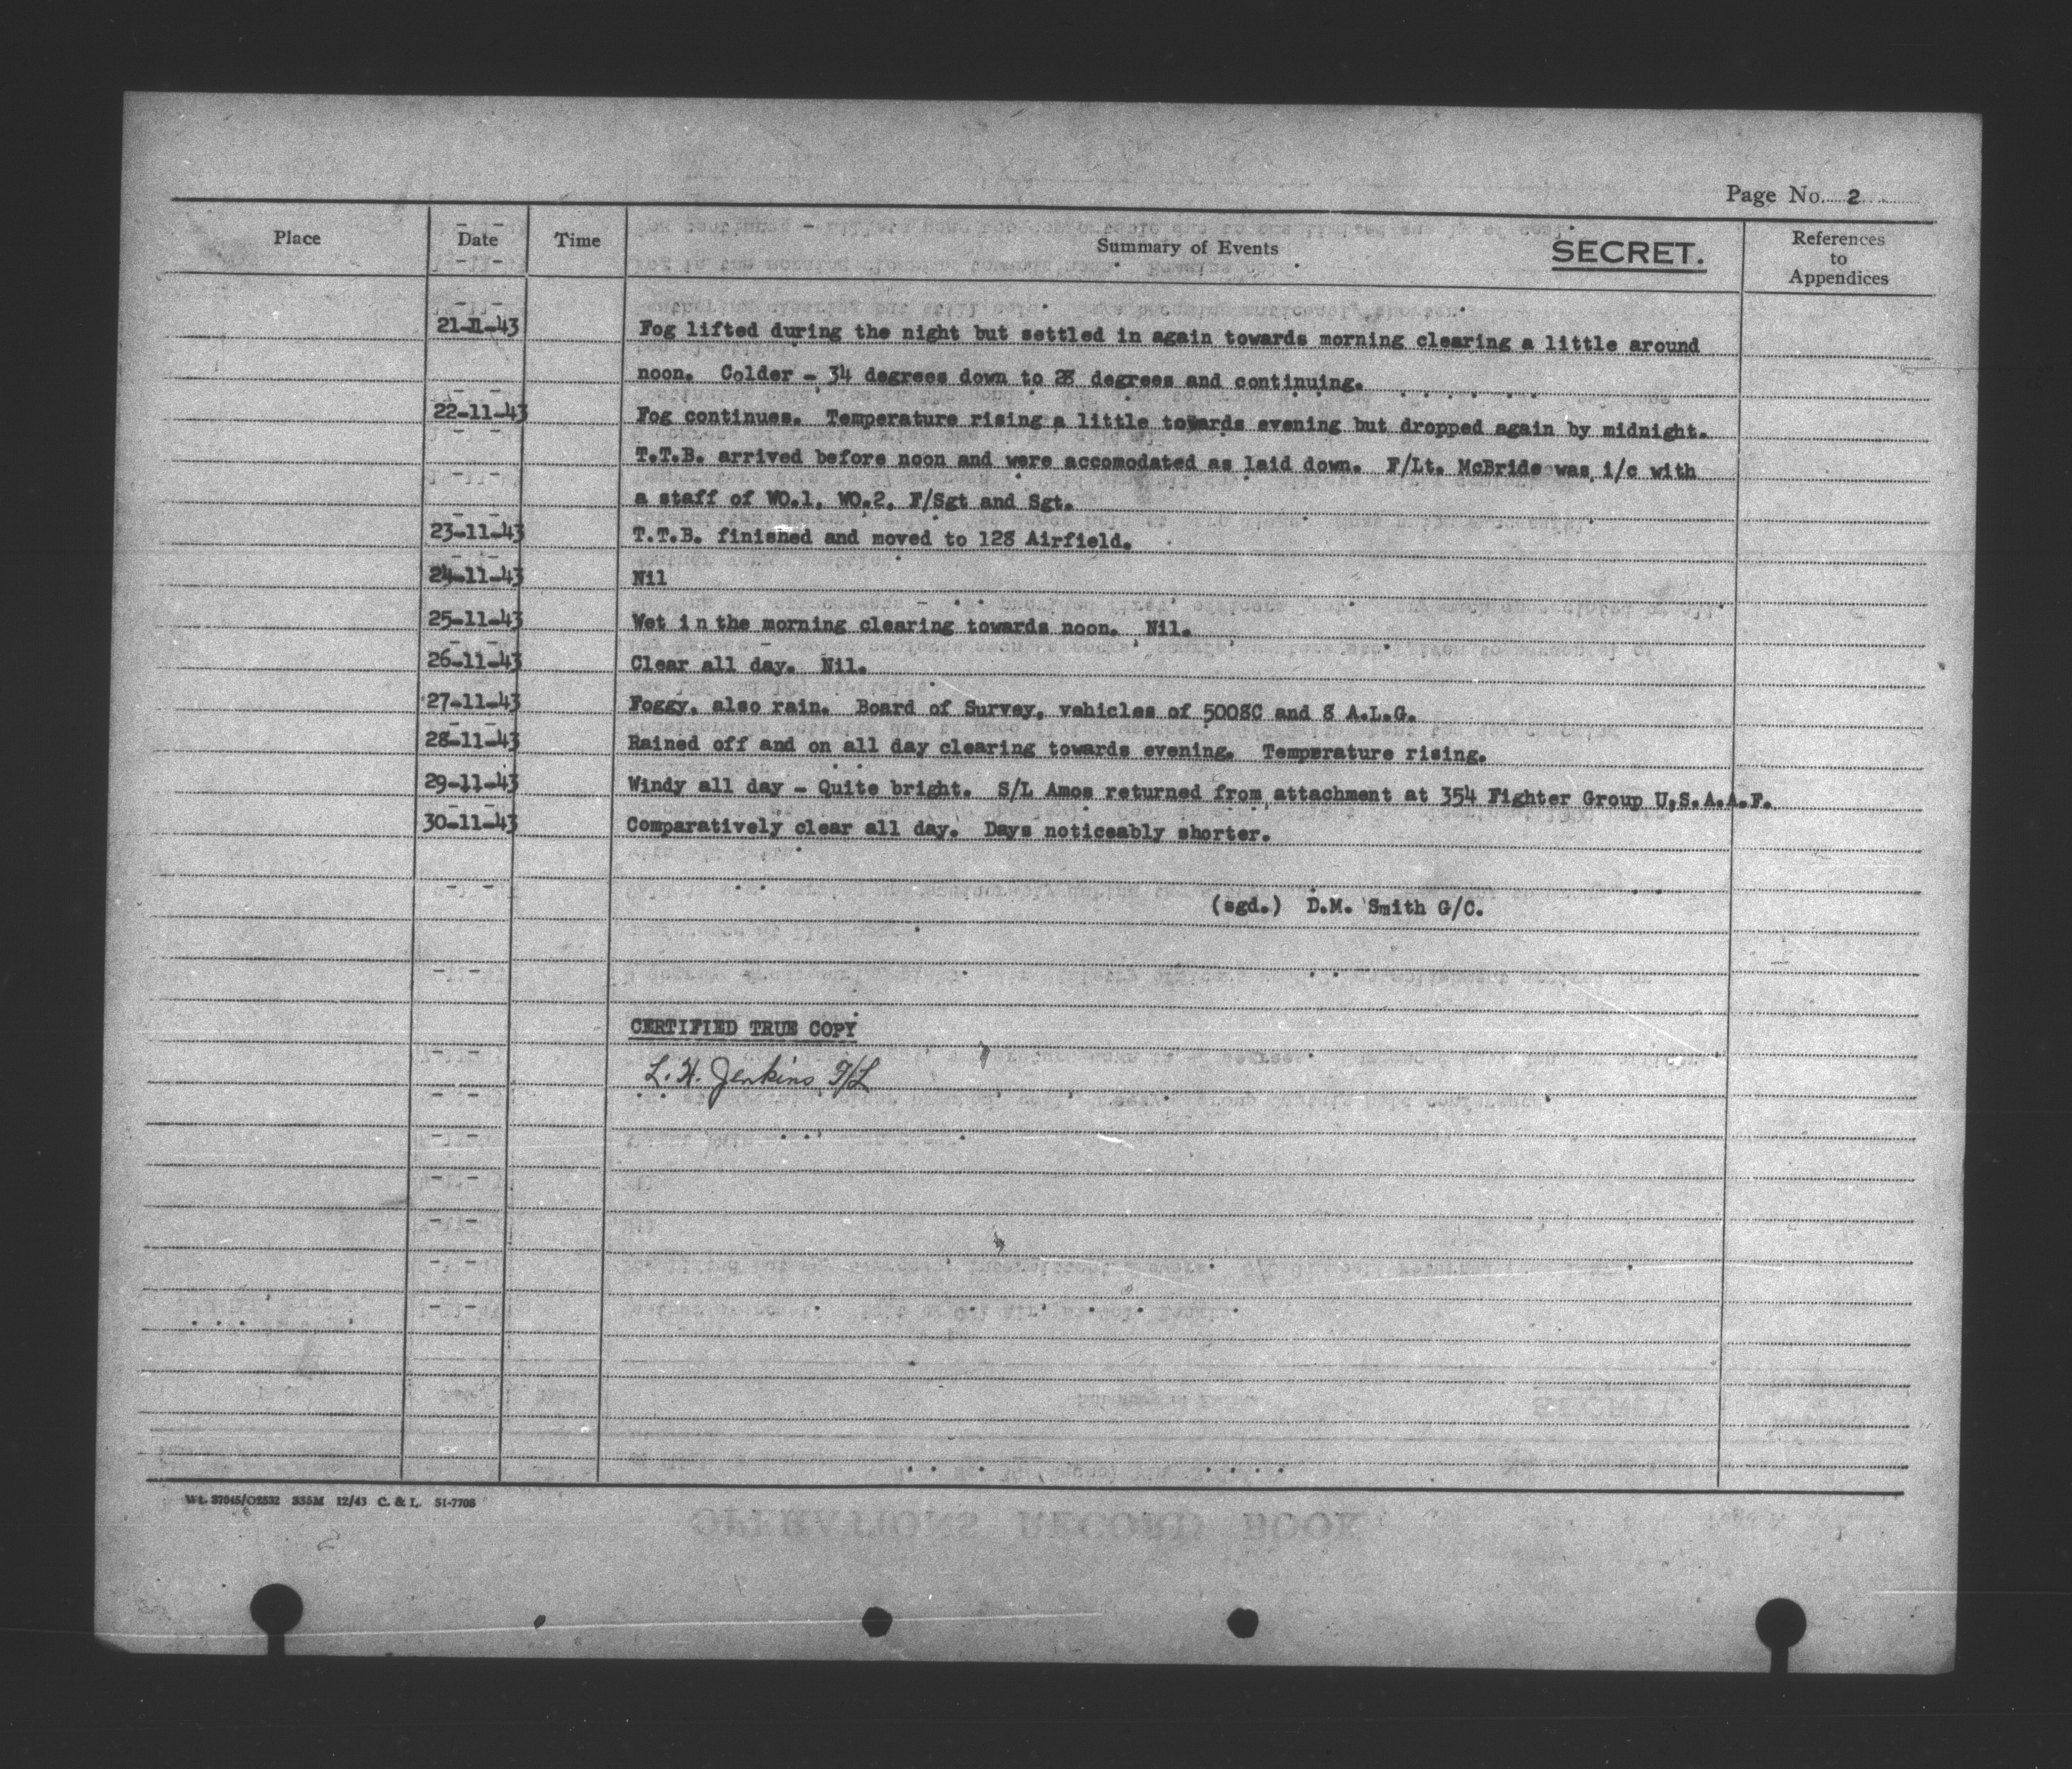 Page No. 2
Place Date Time Summary of Events SECRET. References
to
Appendices
21-11-43 Fog lifted during the night but settled in again towards morning clearing a little around
noon. Colder - 34 degrees down to 28 degrees and continuing.
22-11-43 Fog continues. Temperature rising a little towards evening but dropped again by midnight.
T.T.B. arrived before noon and were accomodated as laid down. F/Lt. McBride was i/c with
a staff of WO.1, WO.2, F/Sgt and Sgt.
23-11-43 T.T.B. finished and moved to 128 Airfield.
24-11-43 Nil
25-11-43 Wet in the morning clearing towards noon. Nil.
26-11-43 Clear all day. Nil.
27-11-43 Foggy, also rain. Board of Survey, vehicles of 5008C and 8 A.L.G.
28-11-43 Rained off and on all day clearing towards evening. Temperature rising.
29-11-43 Windy all day - Quite bright. S/L Amos returned from attachment at 354 Fighter Group U.S.A.A.F.
30-11-43 Comparatively clear all day. Days noticeably shorter.
(sgd.) D.M. Smith G/C.
CERTIFIED TRUE COPY
L. H. Jenkins F/L
Wt. 37045/O2532 335M 12/43 C. & L. 51-7708
OPERATIONS RECORD BOOK